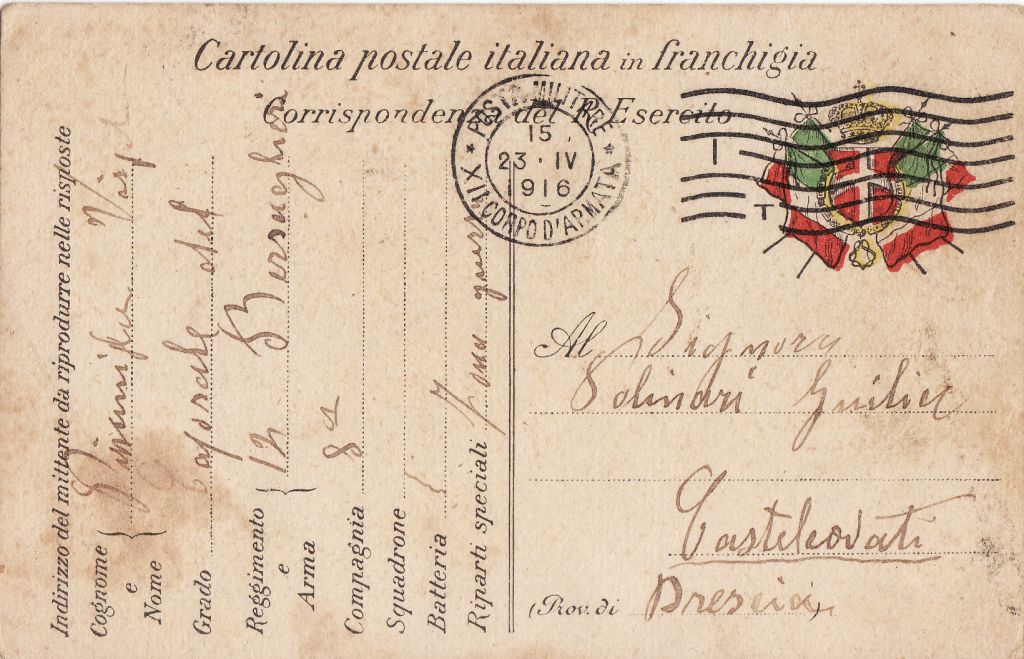 Cartolina postale italiana in franchigia
Corrispondenza del R. Esercito
POSTA MILITARE
15
23 · IV
1916
XII CORPO D'ARMATA
T
Indirizzo del mittente da riprodurre nelle risposte
Cognome e Nome
Grado Caporale
Reggimento e Arma 12 Bersaglieri
Compagnia 8a
Squadrone
Batteria
Riparti speciali Zona guerra
Al Signora
Solinari
Castelcovati
(Prov. di Brescia)